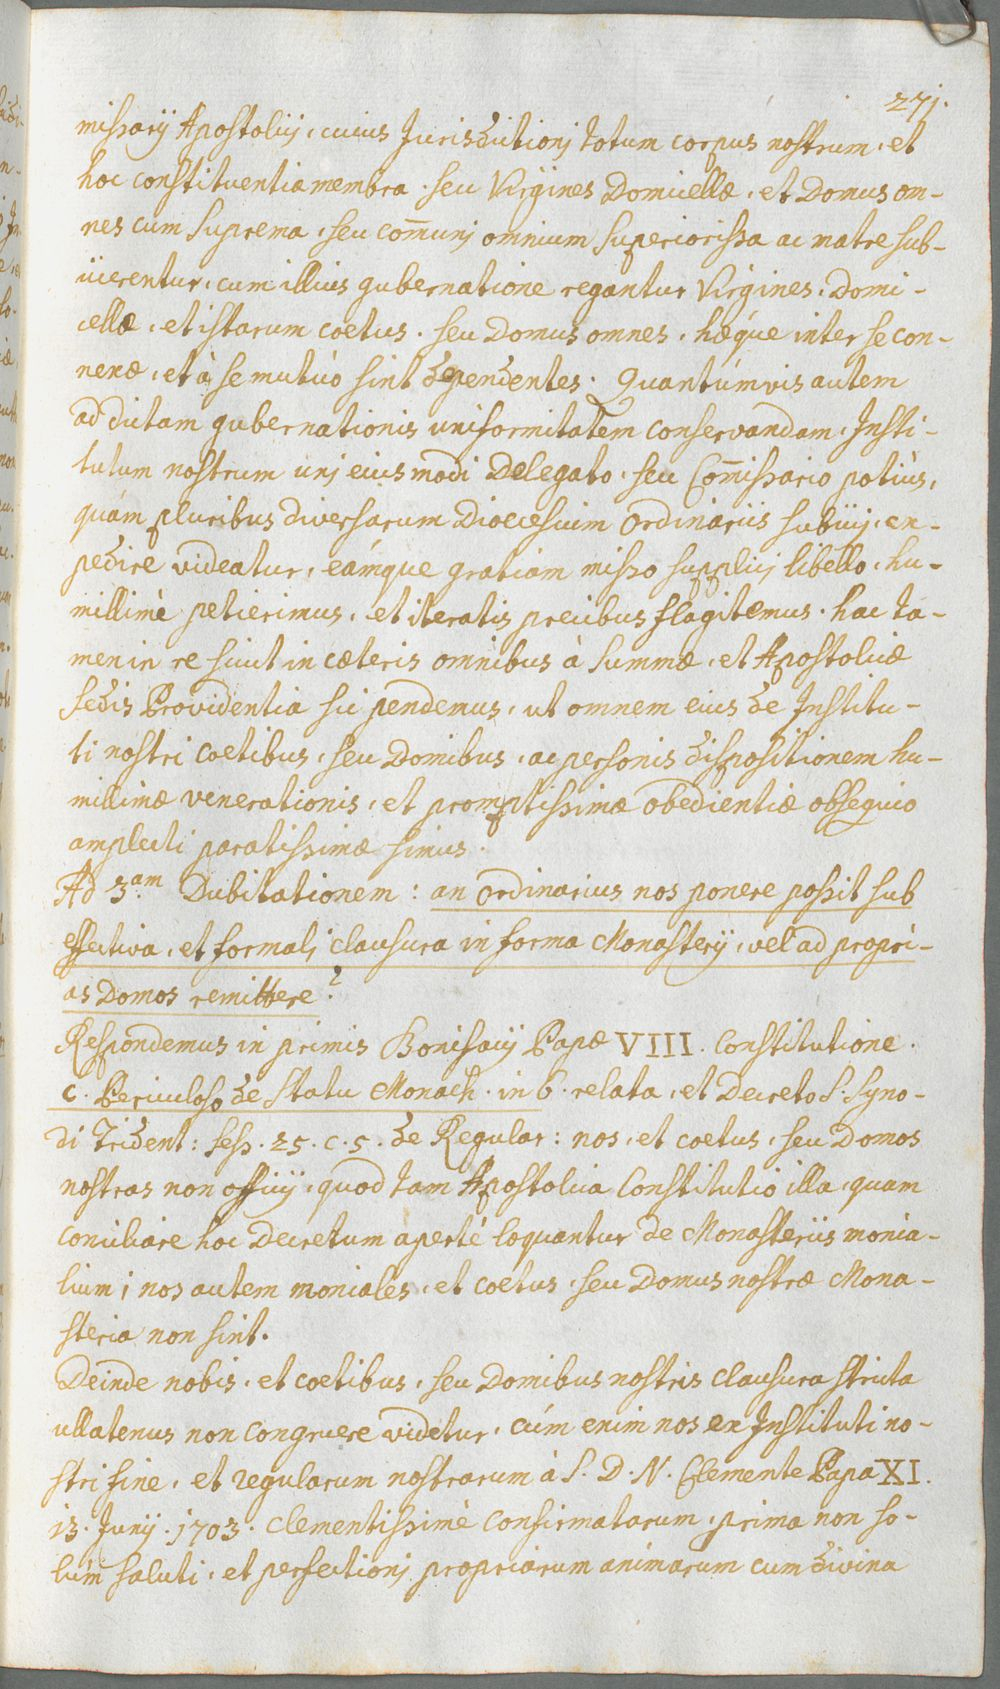 271.
missarij Apostolici, cuius Jurisdictioni totum corpus nostrum, et
hoc constituentia membra, seu Virgines Domicellæ, et Domus om-
nes cum suprema, seu com̄uni omnium superiorissa ac matre sub-
iicerentur, cum illius gubernatione regantur Virgines, Domi-
cellæ, et istarum coetus, seu Domus omnes, hæque inter se con-
nexæ, et à se mutuò sint dependentes. Quantúmvis autem
ad dictam gubernationis uniformitatem conservandam, Insti-
tutum nostrum uni eiusmodi Delegato, seu Com̄issario potiùs,
quám pluribus diversarum Dioecesium Ordinariis subiici, ex-
pedire videatur, eámque gratiam misso supplici libello, hu-
millimè petierimus, et iteratis precibus flagitemus, hac ta-
men in re sicut in cæteris omnibus à summæ, et Apostolicæ
Sedis Providentia sic pendemus, ut omnem eius de Institu-
ti nostri coetibus, seu Domibus, ac personis dispositionem hu-
millimæ venerationis, et promptissimæ obedientiæ obsequio
amplecti paratissimæ simus.
Ad 3.am Dubitationem: an Ordinarius nos ponere possit sub
effectiva, et formali clausura in forma Monasterij, vel ad propri-
as Domos remittere?
Respondemus in primis Bonifacij Papæ VIII. Constitutione.
c. Periculoso de Statu Monach. in 6. relata, et Decreto S. Syno-
di Trident: sess. 25. c. 5. de Regular: nos, et coetus, seu Domos
nostras non affici, quod tam Apostolica Constitutio illa, quam
conciliare hoc Decretum apertè loquantur de Monasteriis monia-
lium; nos autem moniales, et coetus, seu Domus nostræ Mona-
steria non sint.
Deinde nobis, et coetibus, seu Domibus nostris clausura stricta
ullatenus non congruere videtur, cúm enim nos ex Instituti no-
stri fine, et regularum nostrarum à S. D. N. Clemente Papa XI.
13. Junij 1703. clementissimè confirmatarum, prima non so-
lúm saluti, et perfectioni propriarum animarum cum divina